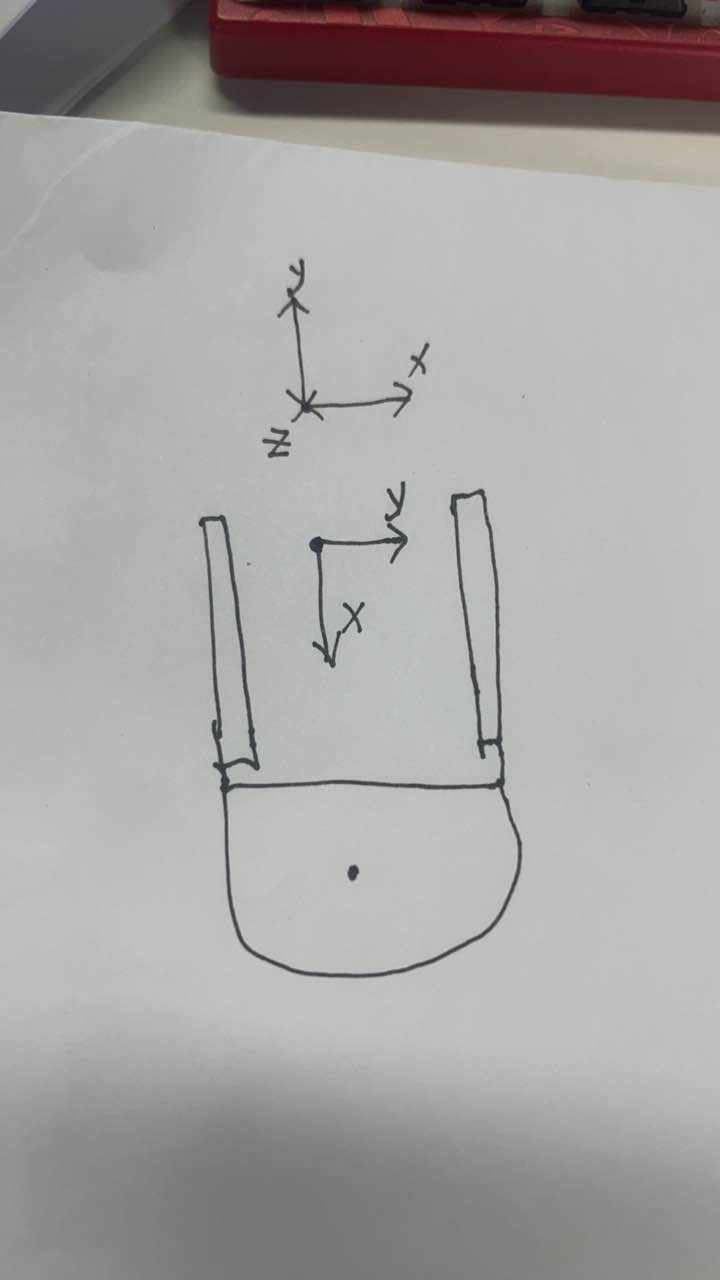 Y
X
Z
Y
X